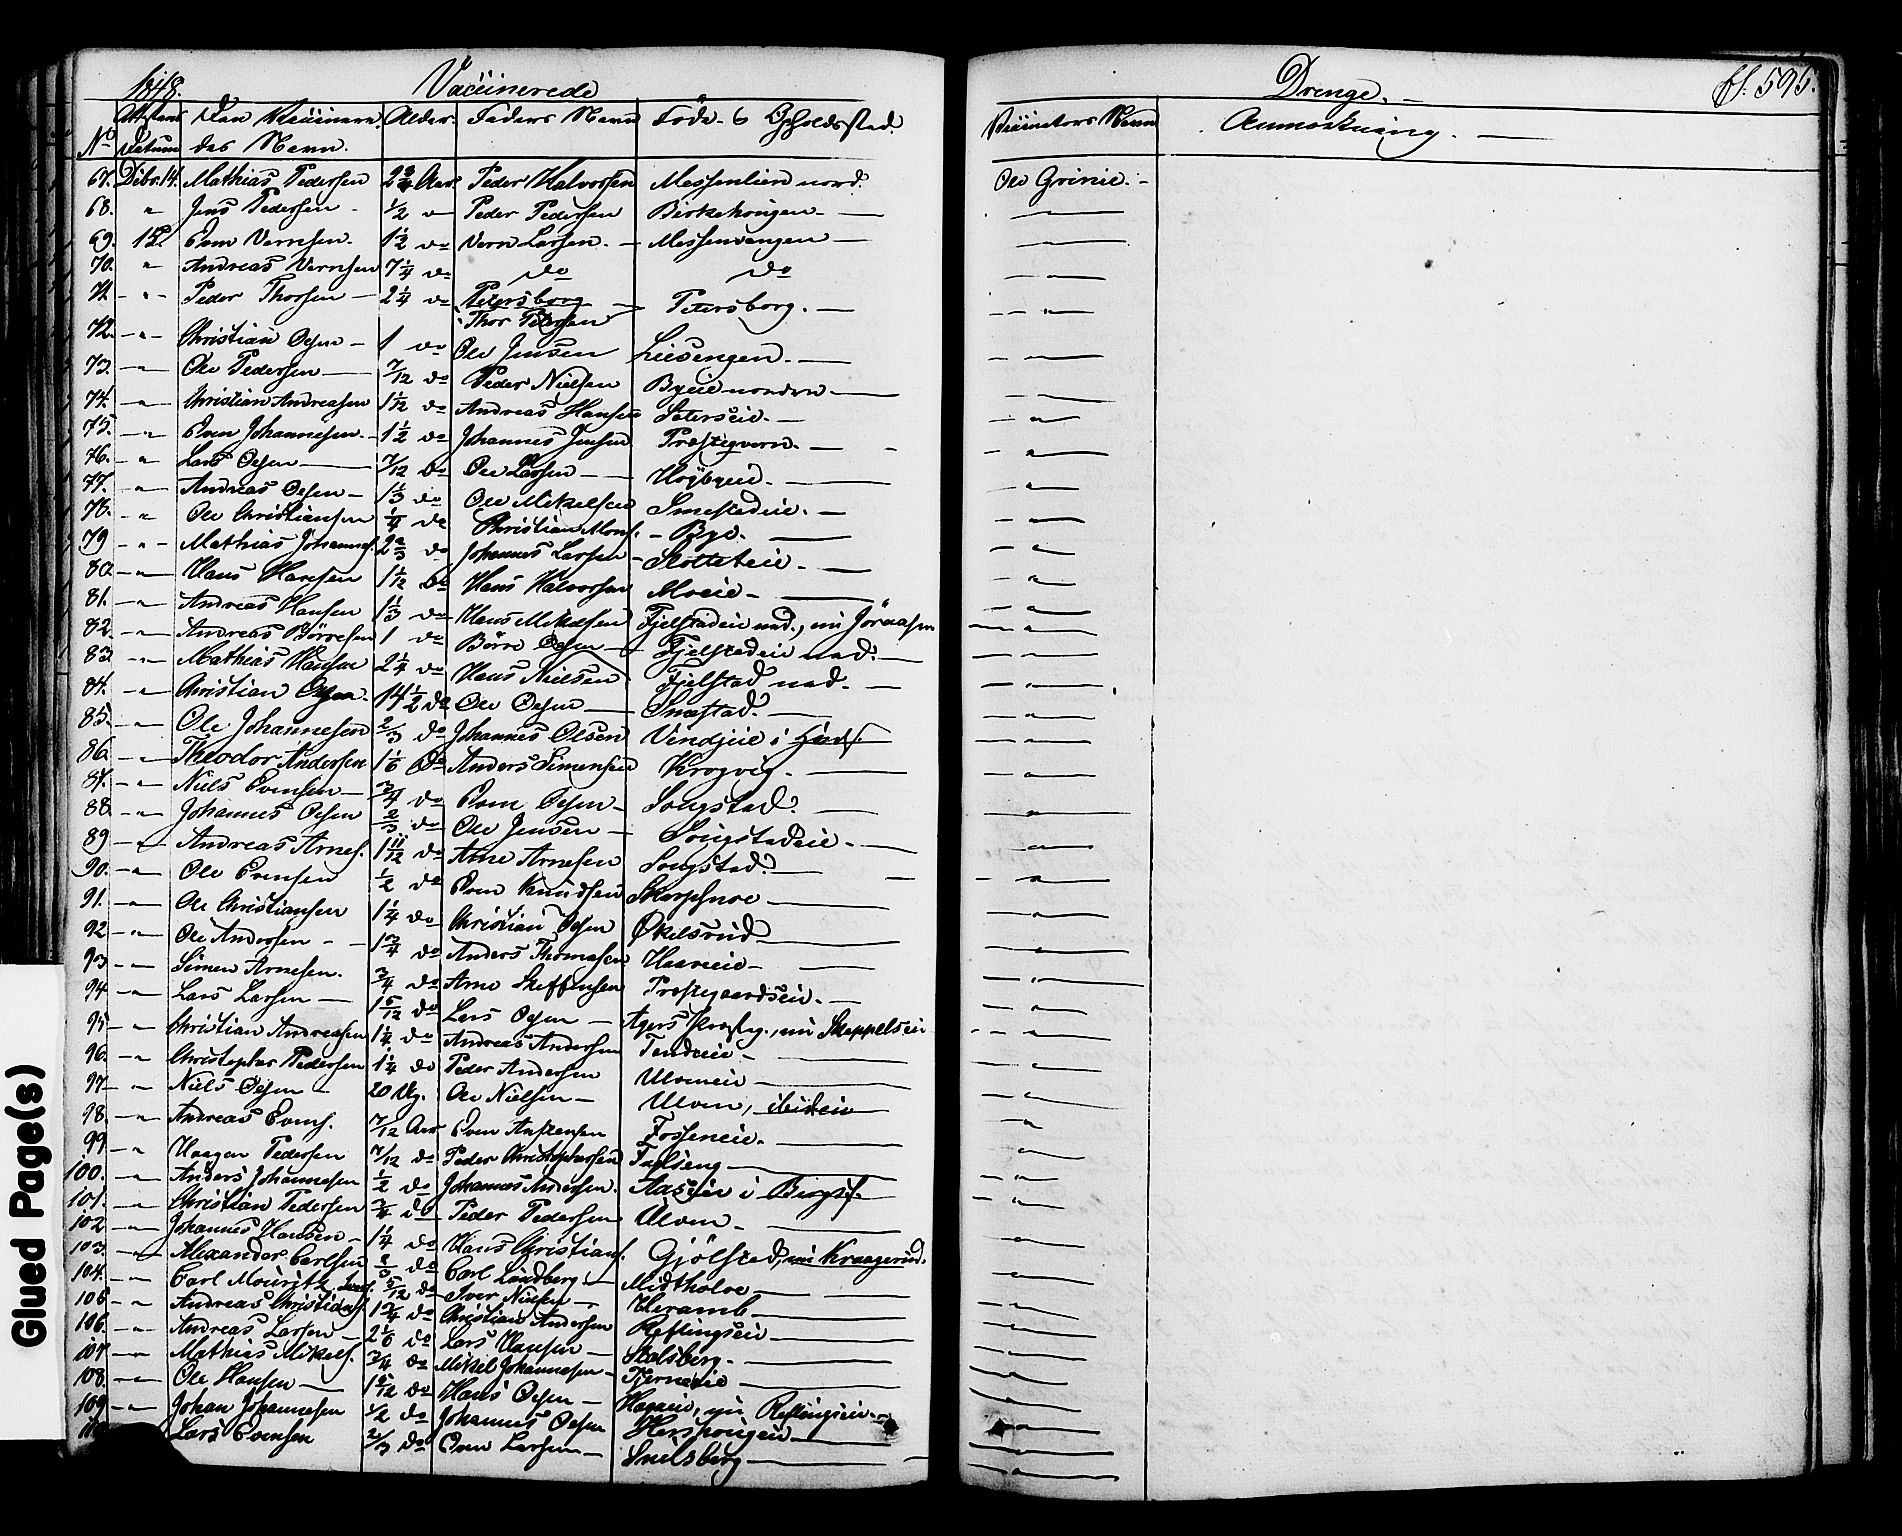 1848. Vaccinerede Drenge. fl. 595.
No Attestens Datum Den Vaccineredes Navn. Alder. Faders Navn Føde- & Opholdsstad. Vaccinators Navn Anmærkning.
67. Dcbr. 14. Mathias Pedersen 2 3/4 Aar Peder Halvorsen Messenlien nord. Ole Grinie.
68. " Jens Pedersen 1/2 " Peder Pedersen Birkehougen "
69. 15. Even Vernsen 1 1/2 do Vern Larsen Messenvangen "
70. " Andreas Vernsen 7 1/4 do do do "
71. " Peder Thorsen 2 1/4 do Petersborg Thor Petersen Petersborg. "
72. " Christian Olsen 1 do Ole Jensen Liesengen. "
73. " Ole Pedersen 7/12 do Peder Nielsen Byeie nordre
74. " Christian Andreasen 1 1/12 do Andreas Hansen Seterseie. "
75. " Even Johannesen 1 1/2 do Johannes Jensen Præstqvern. "
76. " Lars Olsen 7/12 do Ole Larsen Høybyeie. "
77. " Andreas Olsen 1 1/3 do Ole Mikkelsen Smestadeie. "
78. " Ole Christiansen 1/4 do Christian Mons. Bye. "
79 " Mathias Johannes. 2 2/3 do Johannes Larsen Slotteteie. "
80 " Hans Hansen 1 1/12 do Hans Halvorsen Moeie "
81. " Andreas Hansen 1 1/3 do Hans Mikkelsen Fjelstadeie ned., nu Jøraasen "
82. " Andreas Børresen 1 do Børre Olsen Fjelstadeie ned. "
83 " Mathias Hansen 2 1/4 do Hans Nielsen Fjelstad ned. "
84. " Christian Olsen 14 1/2 do Ole Olsen Smestad. "
85. " Ole Johannesen 2/3 do Johannes Olsen Vendjeie i "
86. " Theodor Andersen 1 1/6 do Anders Simensen Krogvig. "
87. " Niels Evensen 3/4 do Even Olsen Songstad. "
88. " Johannes Olsen 2/3 do Ole Jensen Songstadeie. "
89 " Andreas Arnes. 1 11/12 do Arne Arnesen Songstad. "
90. " Ole Evensen 1/2 do Even Knudsen Skarphoe "
91. " Ole Christiansen 1 1/4 do Christian Olsen Økelsrud "
92 " Ole Andersen 1 3/4 do Anders Thomasen Haareie "
93 " Simen Arnesen. 3/4 do Arne Steffensen Prestgaardseie. "
94 " Lars Larsen 1 5/12 do Lars Olsen Agers Præstg., nu Skeppelseie "
95 " Christian Andreasen 1 1/4 do Andreas Andersen Tandeeie "
96. " Christopher Pedersen 1 1/4 do Peder Andersen Ulveneie "
97 " Niels Olsen 20 Ug. Ole Nielsen Ulven, ibideie "
98. " Andreas Evens. 7/12 Aar Even Fosseneie. "
99 " Haagen Pedersen 7/12 do Peder Christophersen "
100. " Anders Johannesen 1/2 do Johannes Andersen. Aaseeie i "
101. " Christian Pedersen 3/4 do Peder Pedersen Ulven "
102 " Johannes Hansen 1 1/4 do Hans Christians. Gjølstad, nu Kraagerud. "
103. " Alexander Carlsen 2/3 do Carl Lundberg Midthole "
104. " Carl Mouritz Ivers. 5/12 do Iver Nielsen Heramb "
105 " Andreas Christians. 1 3/4 do Christian Andersen Reflingseie "
106. " Andreas Larsen 2 1/6 do Lars Hansen Stalsberg. "
107. " Mathias Mikels. 3/4 do Mikel Johannesen Tjerneeie "
108. " Ole Hansen 1 5/12 do Hans Olsen Hageeie, nu Reflingseie "
109 " Johan Johannesen 1/2 do Johannes Olsen Hershougen "
110 Lars Evensen 2/3 do Even Larsen Snelsberg "
Glued Page(s)